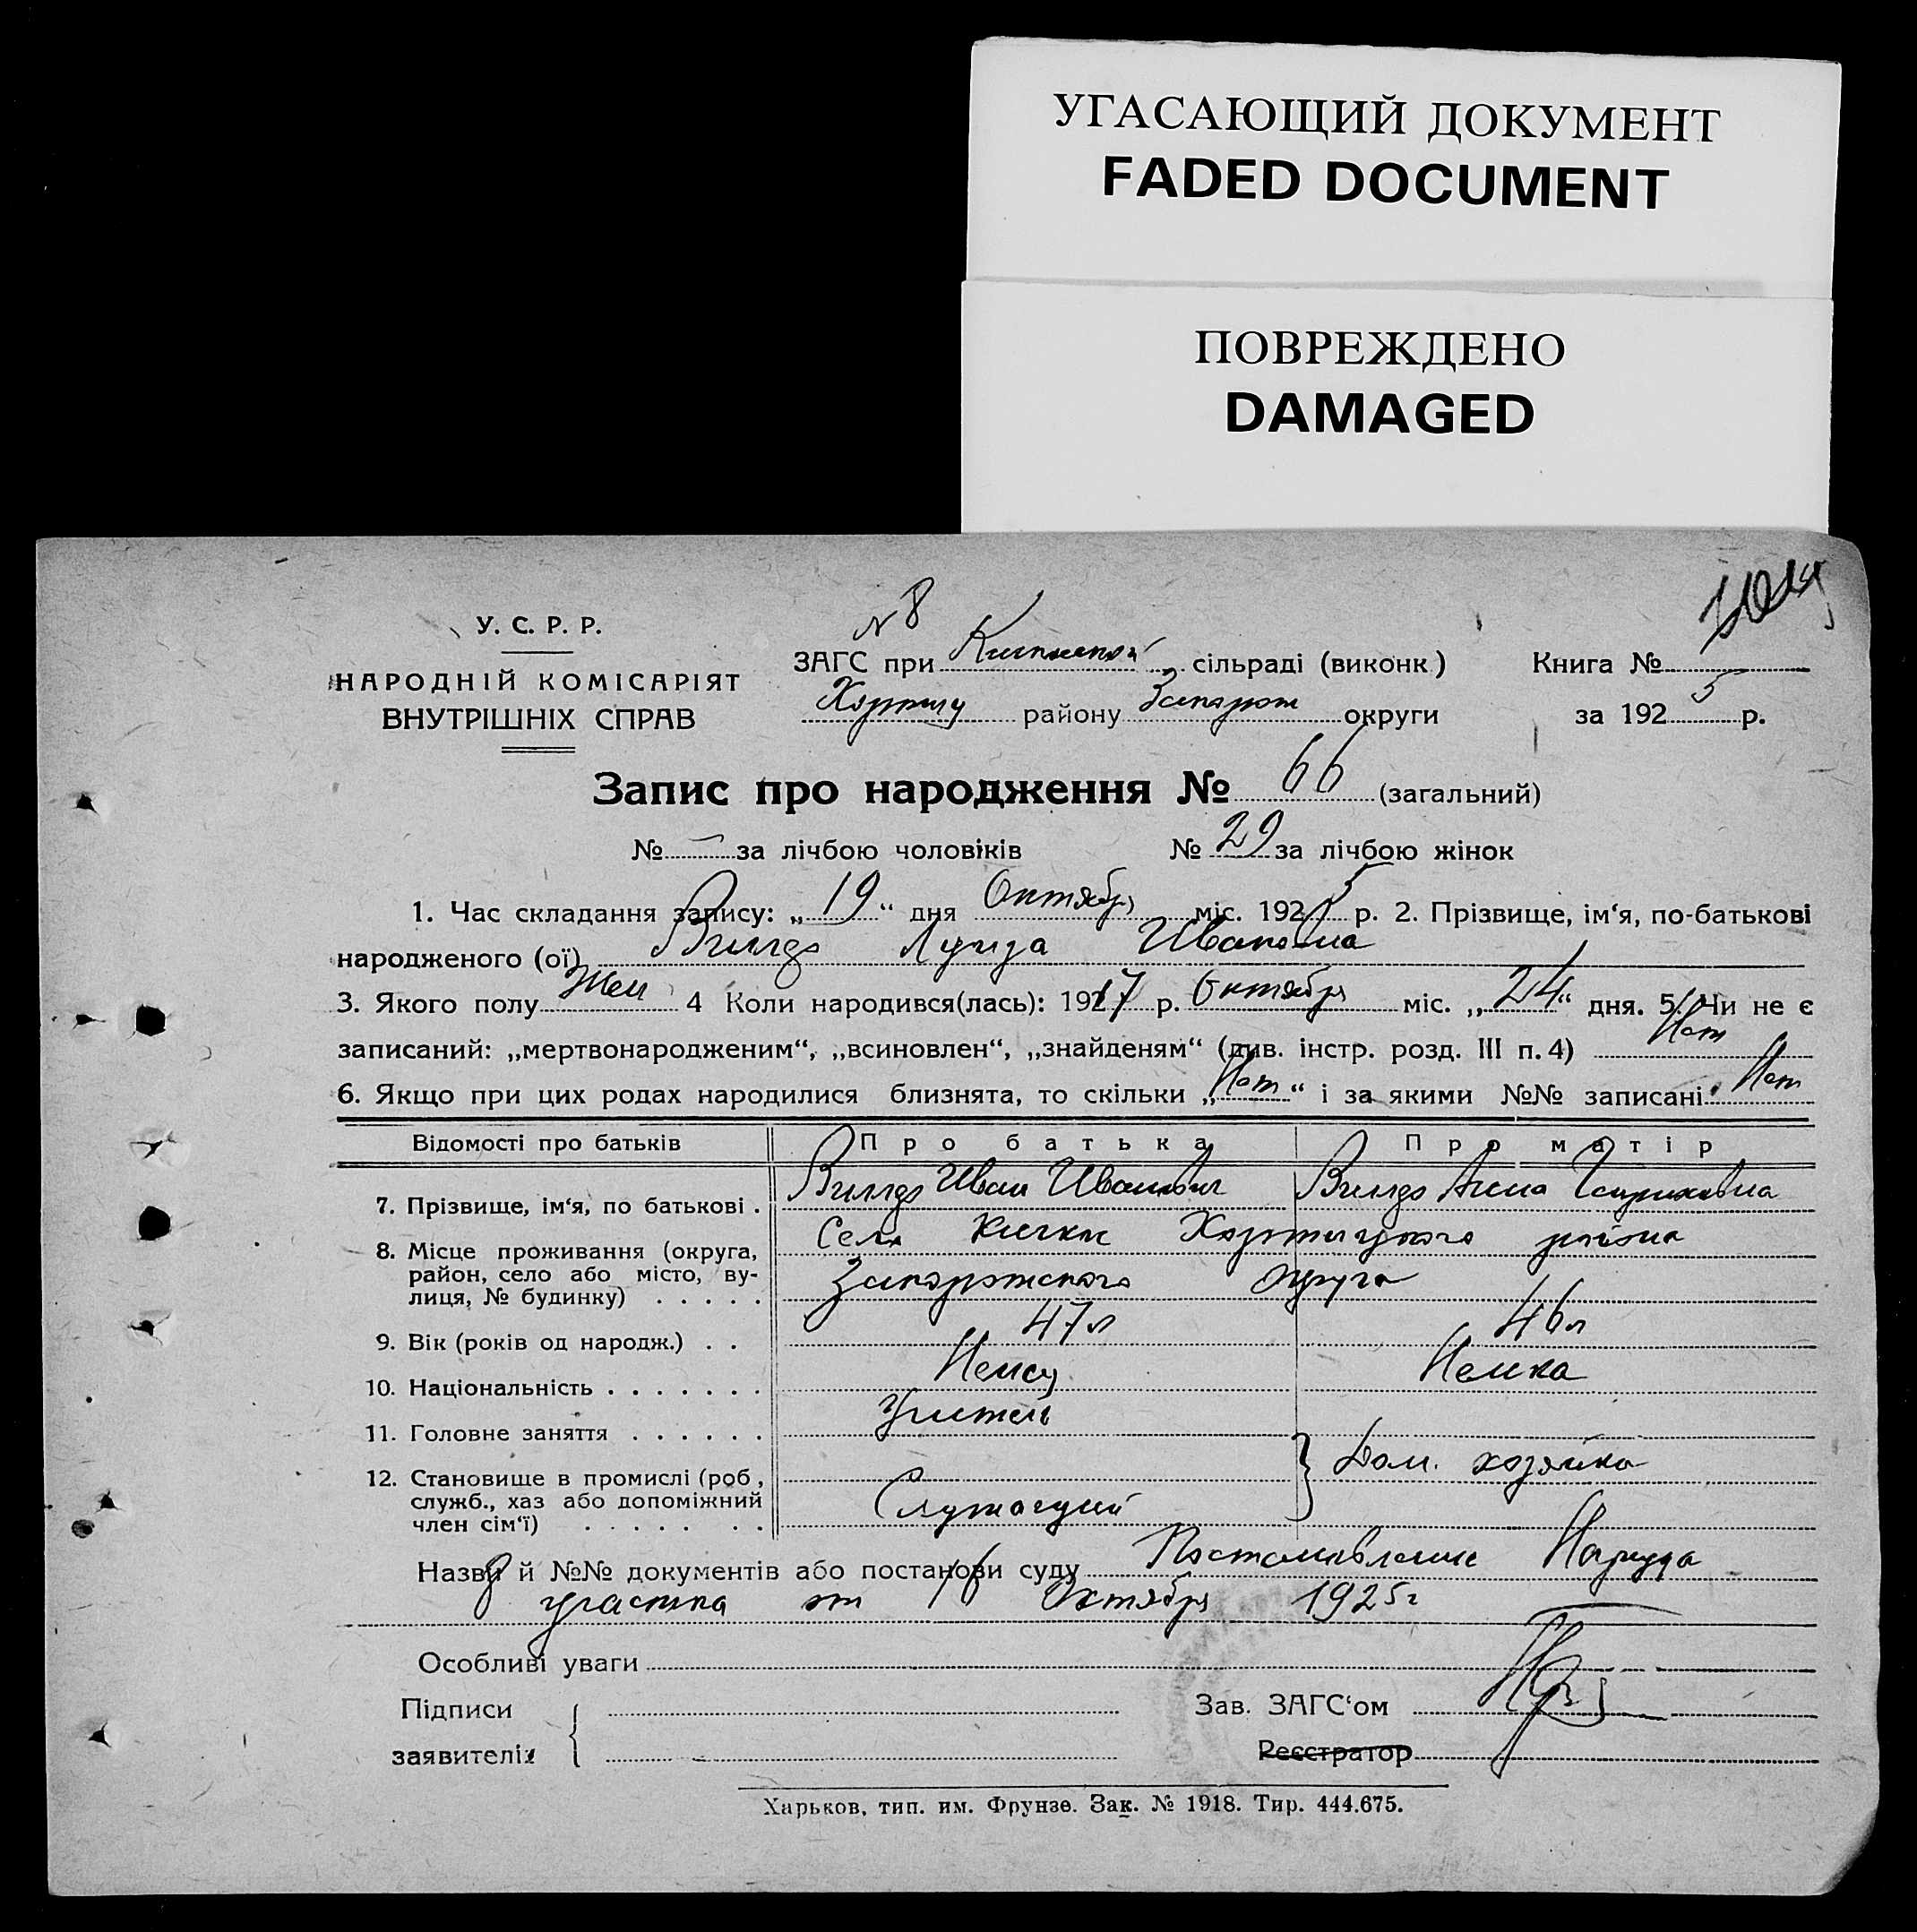 УГАСАЮЩИЙ ДОКУМЕНТ
FADED DOCUMENT
ПОВРЕЖДЕНО
DAMAGED
У. С. Р. Р.
НАРОДНІЙ КОМІСАРІЯТ
ВНУТРІШНІХ СПРАВ
N 8
ЗАГС при сільраді (виконк)
району Запорож округи
Книга №
за 1925 р.
Запис про народження № 66 (загальний)
№ — за лічбою чоловіків № 29 за лічбою жінок
1. Час складання запису: „19“ дня Октября міс. 1925 р. 2. Прізвище, ім‘я, по-батькові
народженого (ої) Вилдо Луиза Ивановна
3. Якого полу Жен 4 Коли народився(лась): 1917 р. Октября міс. „24“ дня. 5. Чи не є
записаний: „мертвонародженим“, „всиновлен“, „знайденям“ (див. інстр. розд. III п. 4) Нет
6. Якщо при цих родах народилися близнята, то скільки „Нет“ і за якими №№ записані Нет
Відомості про батьків Про батька Про матір
7. Прізвище, ім‘я, по батькові . Вилдо Иван Иванович Вилдо Анна Генриховна
8. Місце проживання (округа, район, село або місто, вулиця, № будинку) . . . . . Село Кичкас Хортицкого района
Запорожского округа
9. Вік (років од народж.) . . 47 л 46 л
10. Національність . . . . . . . Немец Немка
11. Головне заняття . . . . . . Учитель
12. Становище в промислі (роб, служб., хаз або допоміжний член сім‘ї) . . . . . . . Служащий Дом. хозяйка
Назви й №№ документів або постанови суду Постановление Нарсуда
8 участка от 16 Октября 1925 г
Особливі уваги
Підписи
заявителів
Зав. ЗАГС‘ом
Реєстратор
Харьков, тип. им. Фрунзе. Зак. № 1918. Тир. 444.675.